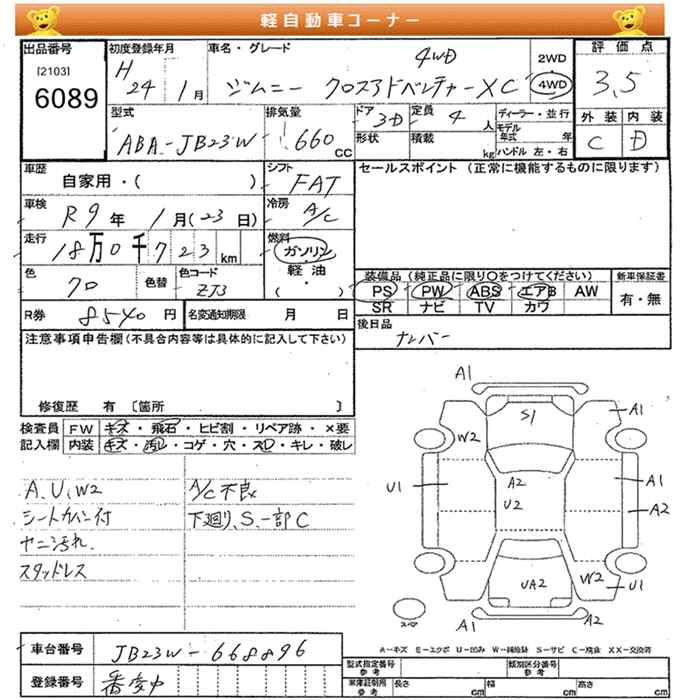 軽自動車コーナー
出品番号
[2103]
6089
初度登録年月
H 24年 1月
車名・グレード
ジムニー クロスアドベンチャーXC 4WD
2WD
4WD
評価点
3.5
外装 内装
C D
型式
ABA-JB23W
排気量
660cc
ドア
3D
定員
4人
形状
積載
kg
ディーラー・並行
モデル年式 年
ハンドル 左・右
車歴
自家用・( )
シフト
FAT
セールスポイント (正常に機能するものに限ります)
車検
R9年 1月(23日)
冷房
A/C
走行
18万0千723km
燃料
ガソリン
軽油
( )
色
クロ
色替
色コード
ZJ3
装備品 (純正品に限り○をつけてください)
PS PW ABS エアB AW
SR ナビ TV カワ
新車保証書
有・無
R券
8540円
名変通知期限 月 日
後日品
ナンバー
注意事項申告欄(不具合内容等は具体的に記入して下さい)
修復歴 有〔箇所 〕
検査員記入欄
FW キズ・飛石・ヒビ割・リペア跡・×要
内装 キズ・汚レ・コゲ・穴・スレ・キレ・破レ
A、U、W2
シートカバー付
ヤニ汚れ
スタッドレス
A/C不良
下廻り、S、一部C
A1
S1
A1
W2
U1
A2
U2
A1
A2
UA2
W2
U1
A1
A2
スペア
A－キズ E－エクボ U－凹み W－補修跡 S－サビ C－腐食 XX－交換済
車台番号
JB23W-668896
登録番号
番変中
型式指定番号
参考
類別区分番号
参考
車庫証明用
参考
長さ cm
幅 cm
高さ cm